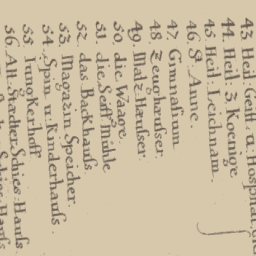 43. Heil: Geist. u. Hospital
44. Heil: 3. Koenige.
45. Heil: Leichnam.
46. S. Anne.
47. Gimnasium.
48. Zeughæuser.
49. Maltz-Hæuser.
50. die Waage.
51. die Seiff Mühle.
52. das Backhauss
53. Magazin. Speicher.
54. Spin. u. Kinderhauss.
55. JungKerhoff
56. Alt. Stædter. Schies-Hauss
Schies-Hauss